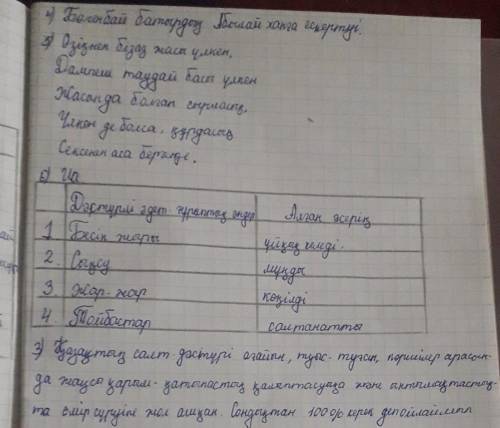 2) Бөгенбай батырдың Абылай ханға ескертуі.
3) Өзіңнен біраз жасы үлкен,
таудай басы үлкен
Жасында болған сырласың,
Үлкен де болса, құрдасың
Сексенге аса бергенде.
6) Иә
Дәстүрлі әдет-ғұрыптық әндер Алған әсерің
1 Бесік жыры ұйқың келді.
2. Сыңсу мұңды
3. Жар-жар көңілді
4 Тойбастар салтанатты
3) Қазақтың салт-дәстүрі ағайын, туыс-туған, арасын-
да жақсы қарым-қатынастың қалыптасуына және ынтымақтастық-
та өмір сүруіне жол ашқан. Сондықтан 100%